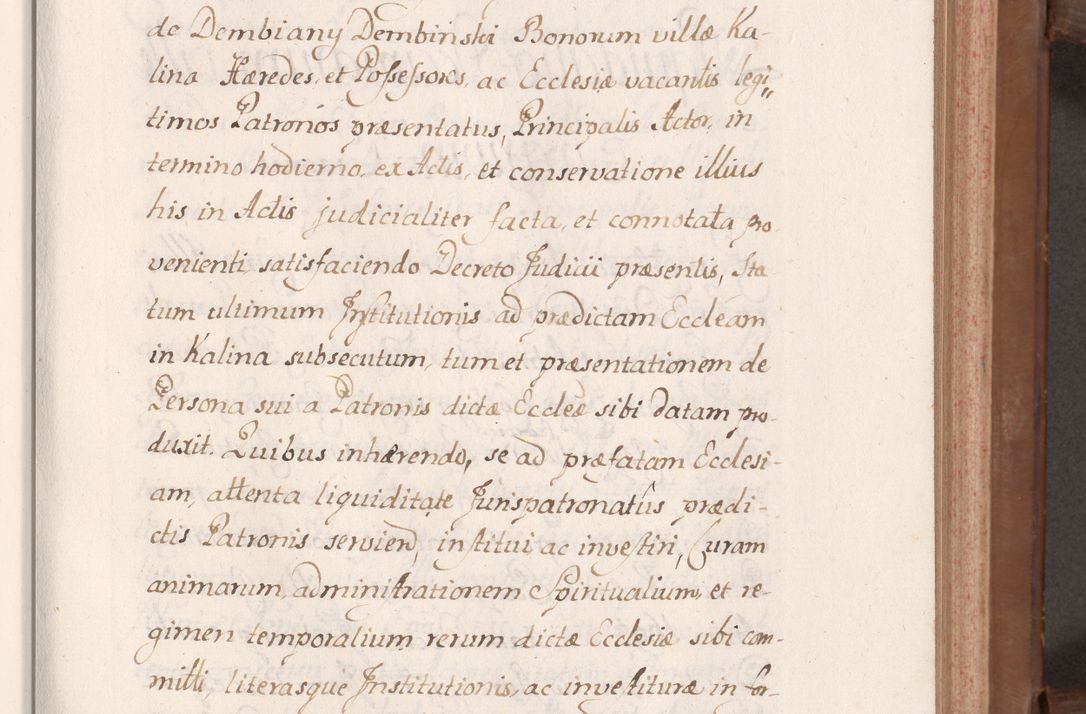 de Dembiany Dembinski Bonorum villæ Ka-
lina Hæredes, et Possessores, ac Ecclesiæ vacantis legi„
timos Patronos præsentatus, Principalis Actor, in
termino hodierno, ex Actis, et conservatione illius
his in Actis judicialiter facta, et connotata pro
venienti satisfaciendo Decreto Judicii præsentis, Sta
tum ultimum Institutionis ad prædictam Eccleam
in Kalina subsecutum, tum et præsentationem de
Persona sui a Patronis dictæ Eccleæ sibi datam pro-
duxit. Quibus inhærendo, se ad præfatam Ecclesi-
am, attenta liquiditate Jurispatronatûs prædi-
ctis Patronis serviend, institui ac investiri, Curam
animarum, administrationem Spiritualium, et re-
gimen temporalium rerum dictæ Ecclesiæ sibi com-
mitti, literasque Institutionis, ac investituræ in for-